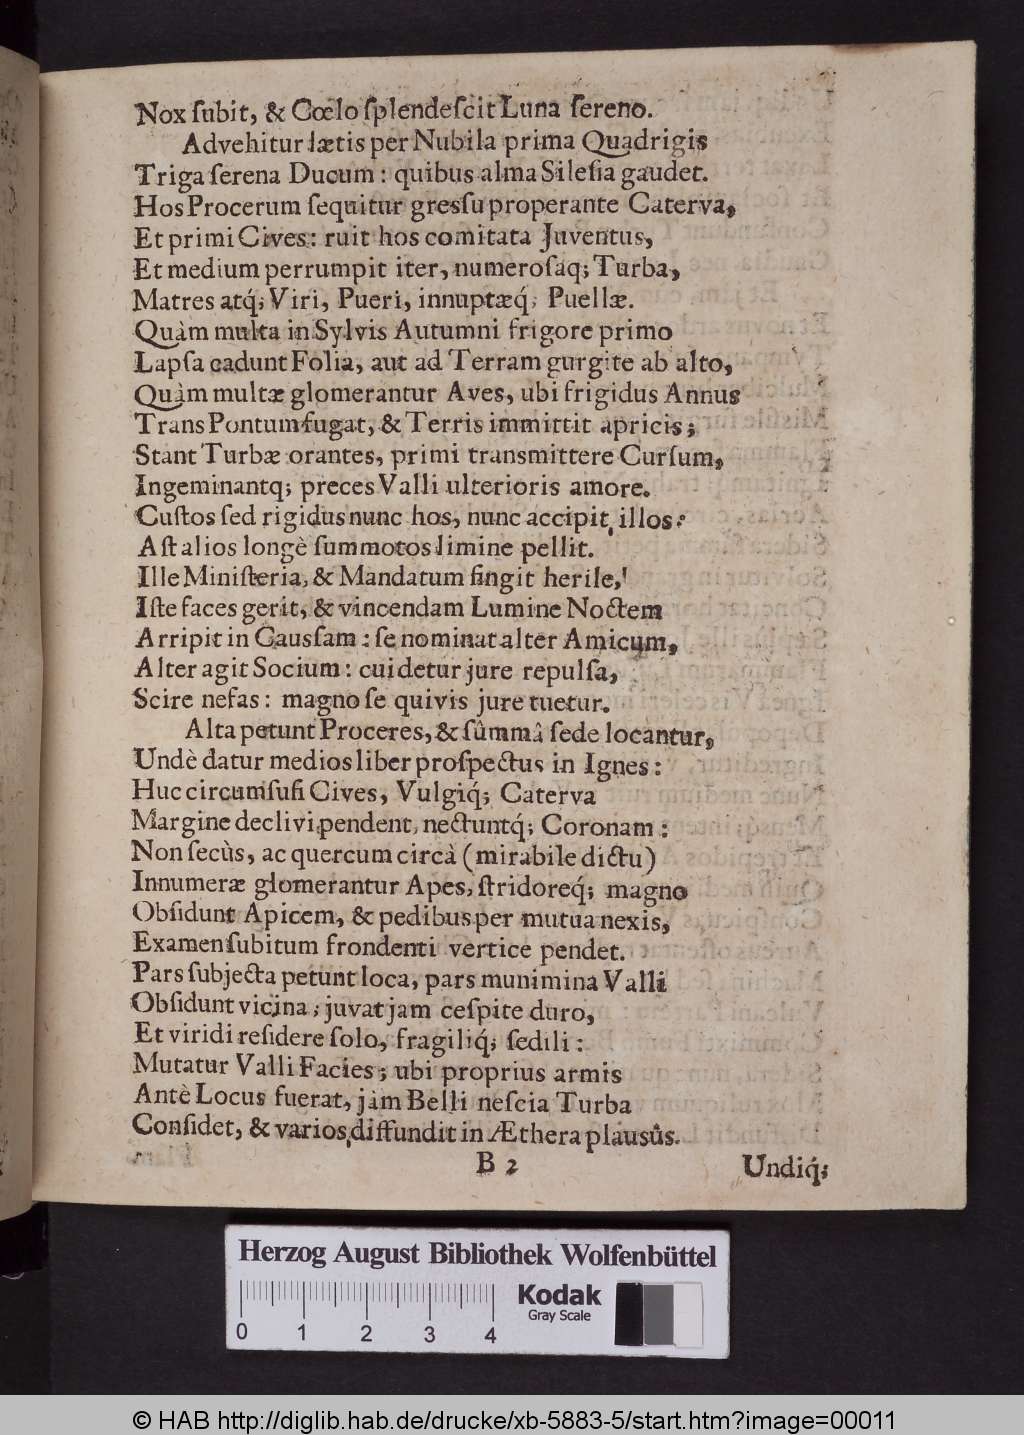 Nox ſubit, & Cœlo ſplendeſcit Luna ſereno.
Advehitur lætis per Nubila prima Quadrigis
Triga ſerena Ducum : quibus alma Sileſia gaudet.
Hos Procerum ſequitur greſsu properante Caterva,
Et primi Cives : ruit hos comitata Juventus,
Et medium perrumpit iter, numeroſaq; Turba,
Matres atq́; Viri, Pueri, innuptæq́; Puellæ.
Quàm multa in Sylvis Autumni frigore primo
Lapſa cadunt Folia, aut ad Terram gurgite ab alto,
Quàm multæ glomerantur Aves, ubi frigidus Annus
Trans Pontum fugat, & Terris immittit apricis;
Stant Turbæ orantes, primi transmittere Curſum,
Ingeminantq; preces Valli ulterioris amore.
Cuſtos ſed rigidus nunc hos, nunc accipit illos:
Aſt alios longè ſummotos limine pellit.
Ille Miniſteria, & Mandatum fingit herile,
Iſte faces gerit, & vincendam Lumine Noctem
Arripit in Cauſsam : ſe nominat alter Amicum,
Alter agit Socium : cui detur jure repulſa,
Scire nefas : magno ſe quivis jure tuetur.
Alta petunt Proceres, & ſûmmâ ſede locantur,
Undè datur medios liber proſpectus in Ignes :
Huc circumfuſi Cives, Vulgiq́; Caterva
Margine declivi pendent, nectuntq́; Coronam :
Non ſecùs, ac quercum circà (mirabile dictu)
Innumeræ glomerantur Apes, ſtridoreq́; magno
Obſidunt Apicem, & pedibus per mutua nexis,
Examen ſubitum frondenti vertice pendet.
Pars ſubjecta petunt loca, pars munimina Valli
Obſidunt vicina ; juvat jam ceſpite duro,
Et viridi reſidere ſolo, fragiliq́; ſedili :
Mutatur Valli Facies ; ubi proprius armis
Antè Locus fuerat, jàm Belli neſcia Turba
Conſidet, & varios diffundit in Æthera plausûs.
B 2
Undiq́;
Herzog August Bibliothek Wolfenbüttel
Kodak
Gray Scale
0 1 2 3 4
© HAB http://diglib.hab.de/drucke/xb-5883-5/start.htm?image=00011